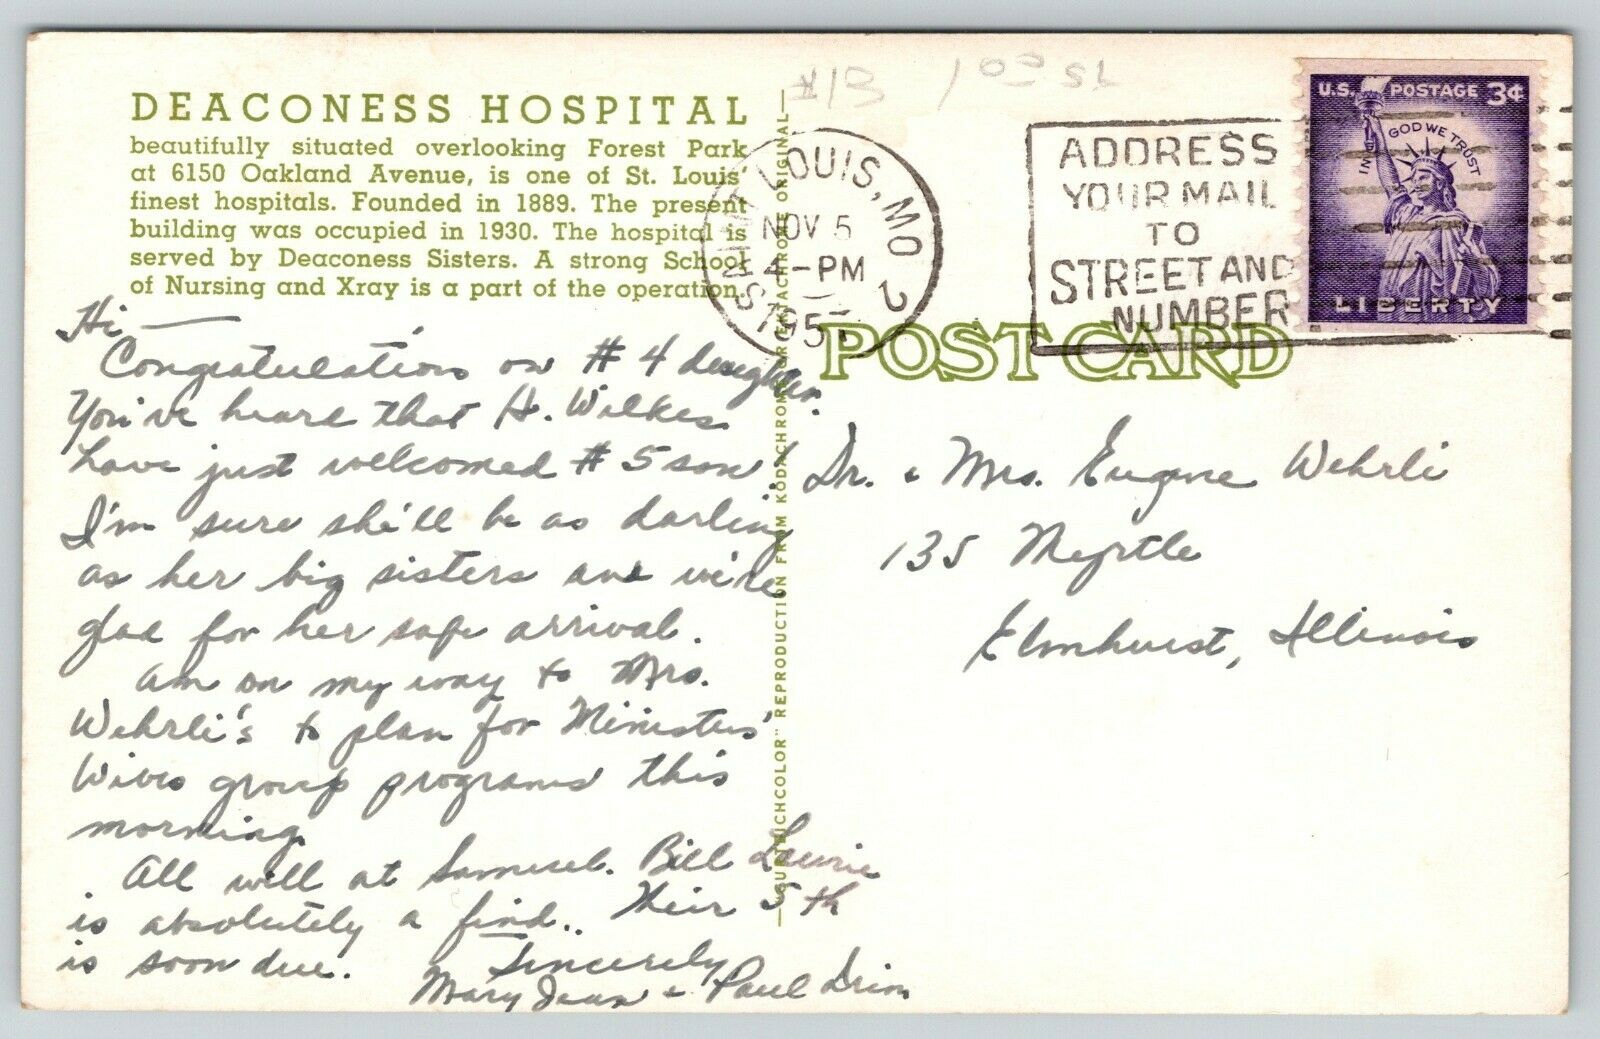 #13 1 00 St
DEACONESS HOSPITAL
beautifully situated overlooking Forest Park
at 6150 Oakland Avenue, is one of St. Louis'
finest hospitals. Founded in 1889. The present
building was occupied in 1930. The hospital is
served by Deaconess Sisters. A strong School
of Nursing and Xray is a part of the operation.
SAINT LOUIS, MO 2
NOV 5
4-PM
195
ADDRESS
YOUR MAIL
TO
STREET AND
NUMBER
U.S. POSTAGE 3¢
IN GOD WE TRUST
LIBERTY
POST CARD
"CURTEICHCOLOR" REPRODUCTION FROM KODACHROME OR EKTACHROME ORIGINAL
Hi —
Congratulations on #4 daughter.
You've heard that H. Wilkes
have just welcomed #5 son!
I'm sure she'll be as darling
as her big sisters and we're
glad for her safe arrival.
Am on my way to Mrs.
Wehrli's to plan for Ministers'
Wives group programs this
morning.
All well at Samuel. Bill Laurie
is absolutely a find.. Their 5th
is soon due.
Sincerely
Mary Jean & Paul
Dr. & Mrs. Eugene Wehrli
135 Myrtle
Elmhurst, Illinois